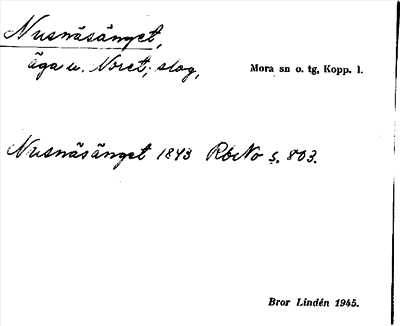 Nusnäsänget,
äga u. Noret; slog,
Mora sn o. tg, Kopp. l.
Nusnäsänget 1843 RbNo s. 803.
Bror Lindén 1945.